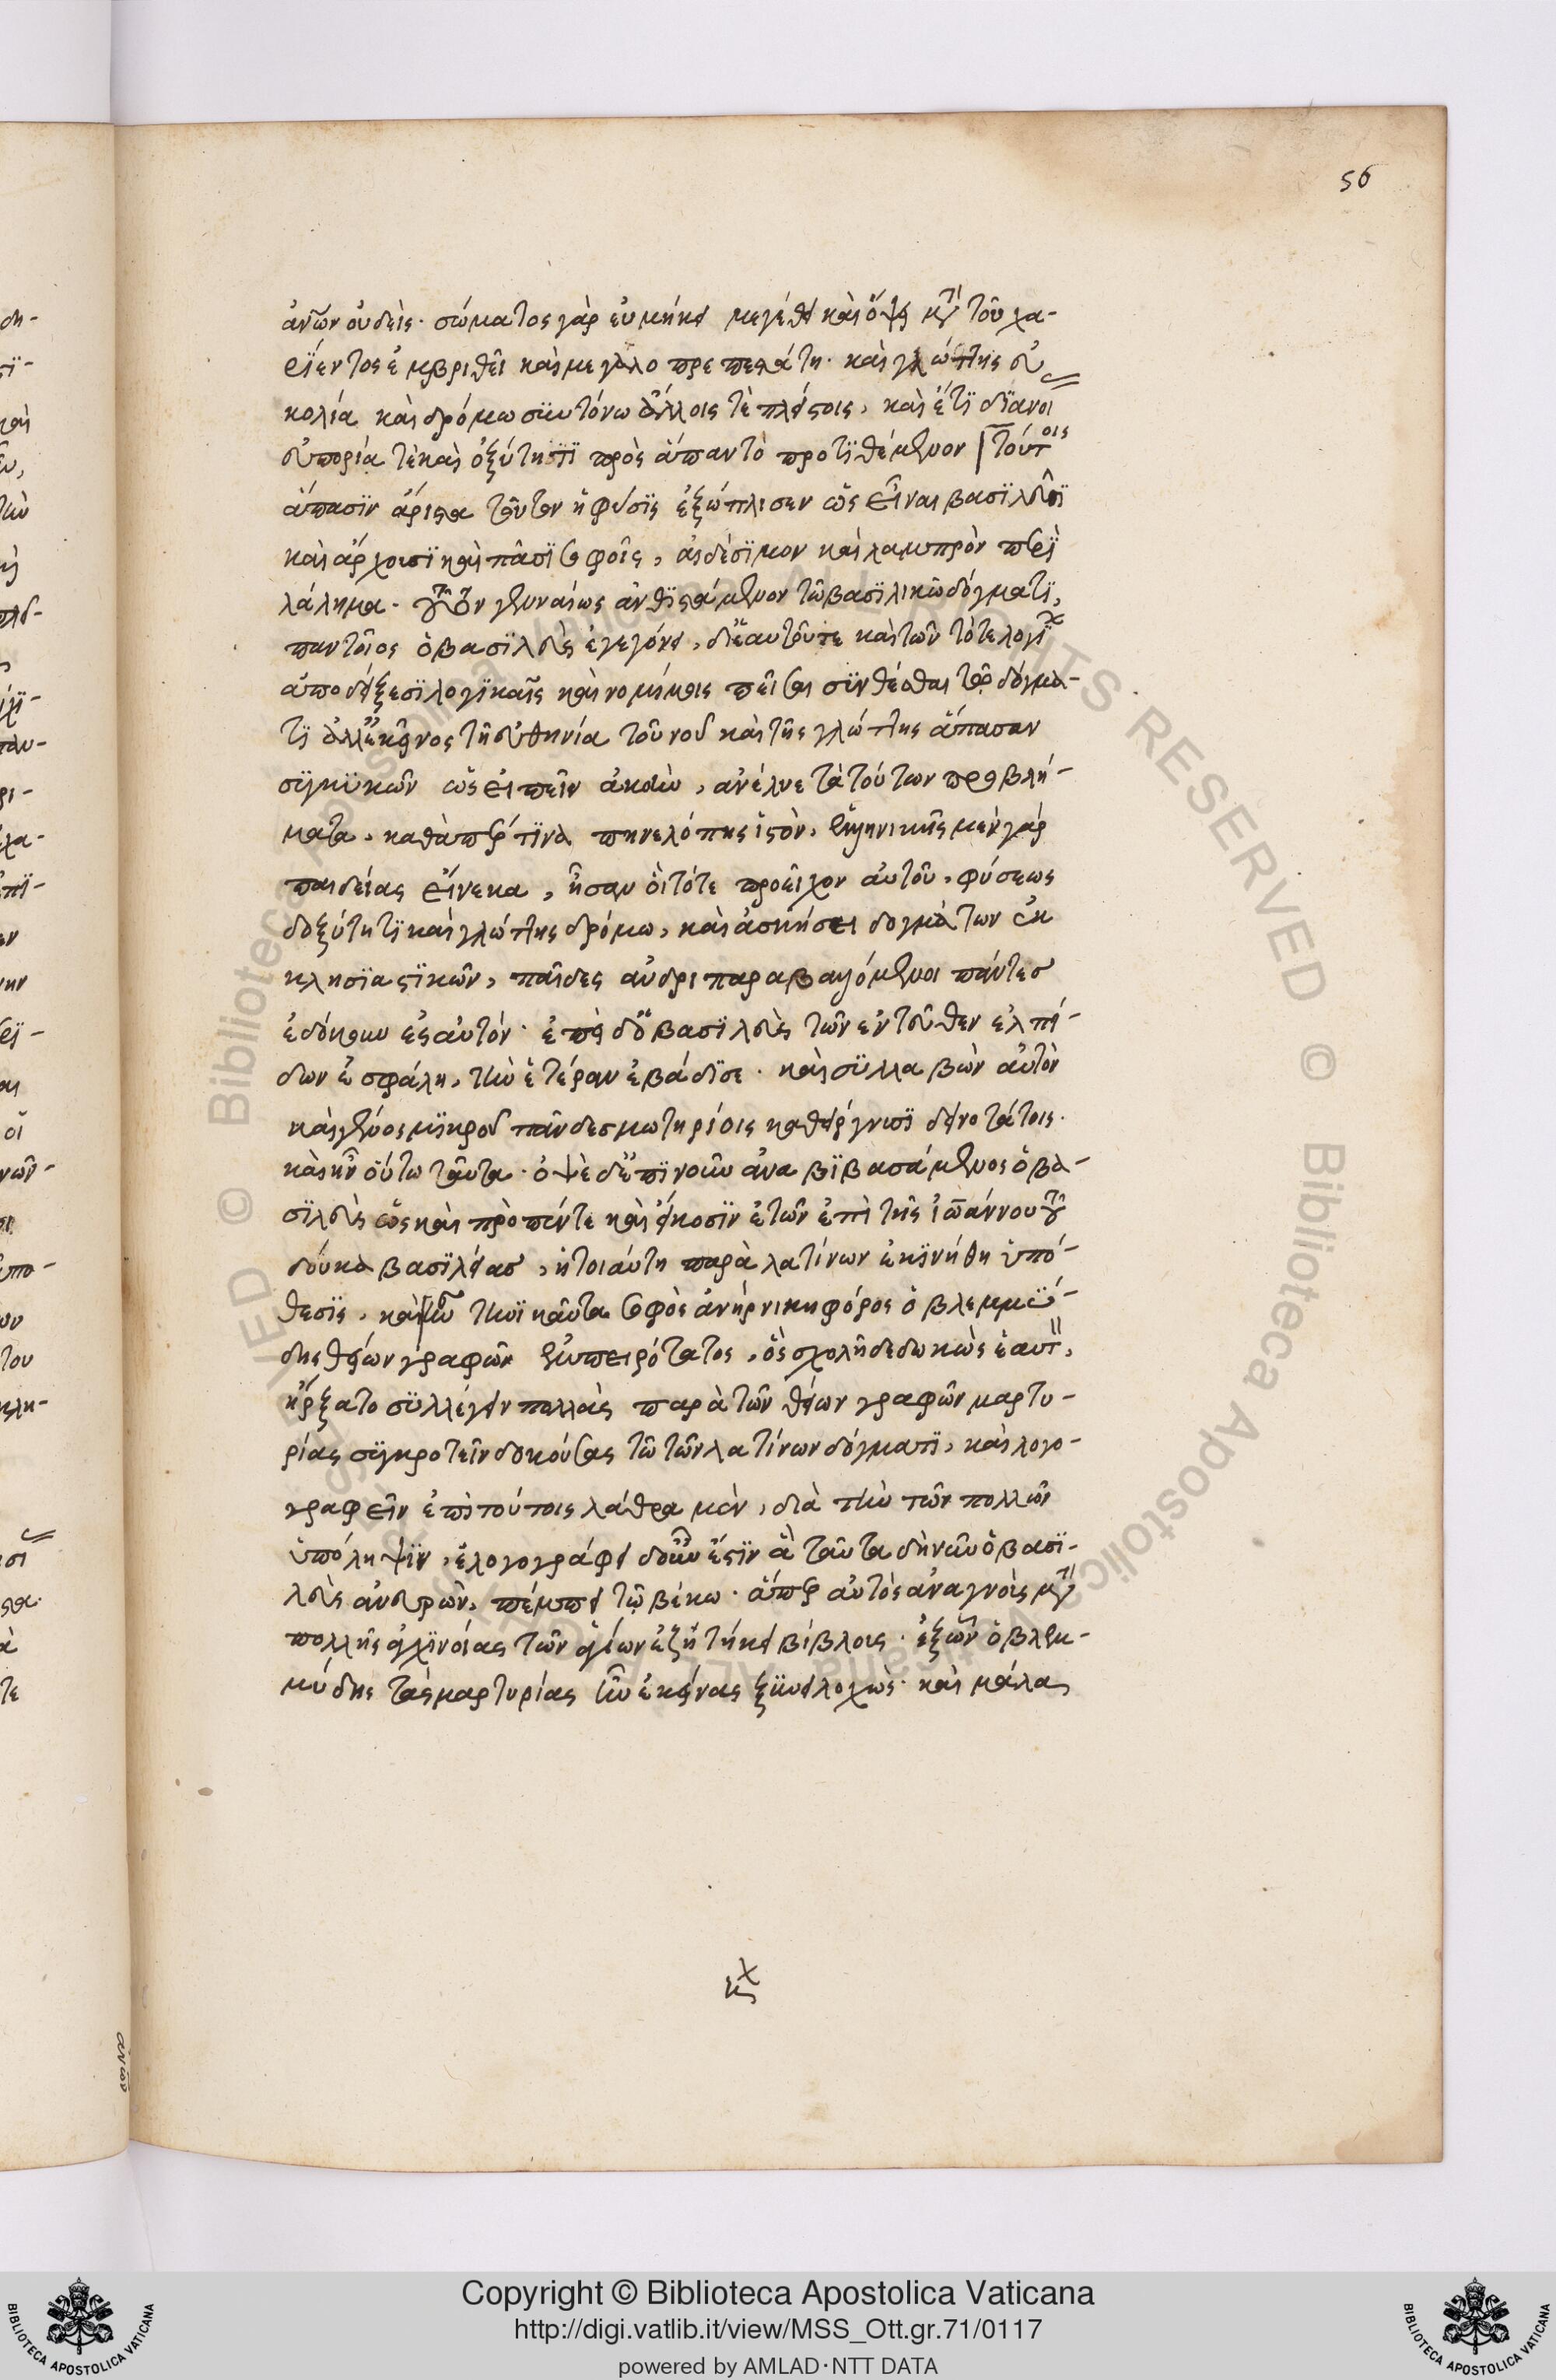 56
ἀνιὼν οὐδείς· σώματος γὰρ εὐμήκει μεγέθει καὶ ὄψει μετὰ τοῦ χα-
ρίεντος ἐμβριθεῖ καὶ μεγαλοπρεπεστάτη· καὶ γλώττης εὐ
κολία καὶ δρόμω συντόνω ἄλλοις τὲ πλείστοις, καὶ ἔτι διανοί
εὐπορία τὲ καὶ ὀξύτητι πρὸς ἅπαν τὸ προτιθέμενον τούτοις
ἅπασιν ἄριστα τοῦτον ἡ φύσις ἐξώπλισεν ὡς εἶναι βασιλεῦσι
καὶ ἄρχουσι καὶ πᾶσι σοφοῖς, αἰδέσιμον καὶ λαμπρὸν περι
λάλημα. τοῦτον γενναίως ἀνθιστάμενον τῶ βασιλικῶ δόγματι,
παντοῖος ὁ βασιλεὺς ἐγεγόνει, δι' ἑαυτοῦ τε καὶ τῶν τότε λογί
ἀποδείξεσι λογικαῖς καὶ νομίμοις πεῖσαι συνθέσθαι τῷ δόγμα-
τι ἀλλ' ἐκεῖνος τῆ εὐθηνία τοῦ νοῦ καὶ τῆς γλώττης ἅπασαν
συγκυκῶν ὡς εἰπεῖν ἀκοὴν, ἀνέλυε τὰ τούτων προβλή-
ματα, καθάπερ τινὰ πηνελόπης ἱστὸν, ἑλληνικῆς μὲν γὰρ
παιδείας εἵνεκα, ἦσαν οἳ τότε προεῖχον αὐτοῦ, φύσεως
δ' ὀξύτητι καὶ γλώττης δρόμω, καὶ ἀσκήσει δογμάτων ἐκ
κλησιαστικῶν, παῖδες ἀνδρὶ παραβαλλόμενοι πάντες
ἐδόκουν ἐς αὐτόν· ἐπεὶ δ' ὁ βασιλεὺς τῶν ἐντεῦθεν ἐλπί-
δων ἐσφάλη, τὴν ἑτέραν ἐβάδισε· καὶ συλλαβὼν αὐτὸν
καὶ γένος μικροῦ πᾶν δεσμωτηρίοις καθείργνυσι δεινοτάτοις·
καὶ ἦν οὕτω ταῦτα· ὀψὲ δ' ἐπὶ νοῦν ἀναβιβασάμενος ὁ βα-
σιλεὺς ὡς καὶ πρὸ πέντε καὶ εἴκοσιν ἐτῶν ἐπὶ τῆς ἰωάννου τοῦ
δούκα βασιλείας, ἡ τοιαύτη παρὰ λατίνων ἐκινήθη ὑπό-
θεσις, καὶ ἦν τηνικαῦτα σοφὸς ἀνὴρ νικηφόρος ὁ βλεμμύ-
δης θείων γραφῶν ἐμπειρότατος, ὃς σχολὴ δεδωκὼς ἑαυτ,
ἤρξατο συλλέγειν πολλὰς παρὰ τῶν θείων γραφῶν μαρτυ-
ρίας συγκροτεῖν δοκούσας τῶ τῶν λατίνων δόγματι, καὶ λογο-
γραφεῖν ἐπὶ τούτοις λάθρα μὲν, διὰ τὴν τῶν πολλῶν
ὑπόληψιν, ἐλογογράφει δ' οὖν ἔστιν ἃ ταῦτα δὴ νῦν ὁ βασι-
λεὺς ἀνευρὼν, πέμπει τῷ βέκω· ἅπερ αὐτὸς ἀναγνοὺς μετὰ
πολλῆς ἀγχινοίας τῶν ἁγίων ἐζητήκει βίβλοις· ἐξ ὧν ὁ βλεμ-
μύδης τὰς μαρτυρίας ἦν ἐκείνας ξυνειλοχὼς· καὶ μάλα
Copyright © Biblioteca Apostolica Vaticana
http://digi.vatlib.it/view/MSS_Ott.gr.71/0117
powered by AMLAD·NTT DATA
BIBLIOTECA APOSTOLICA VATICANA
BIBLIOTECA APOSTOLICA VATICANA